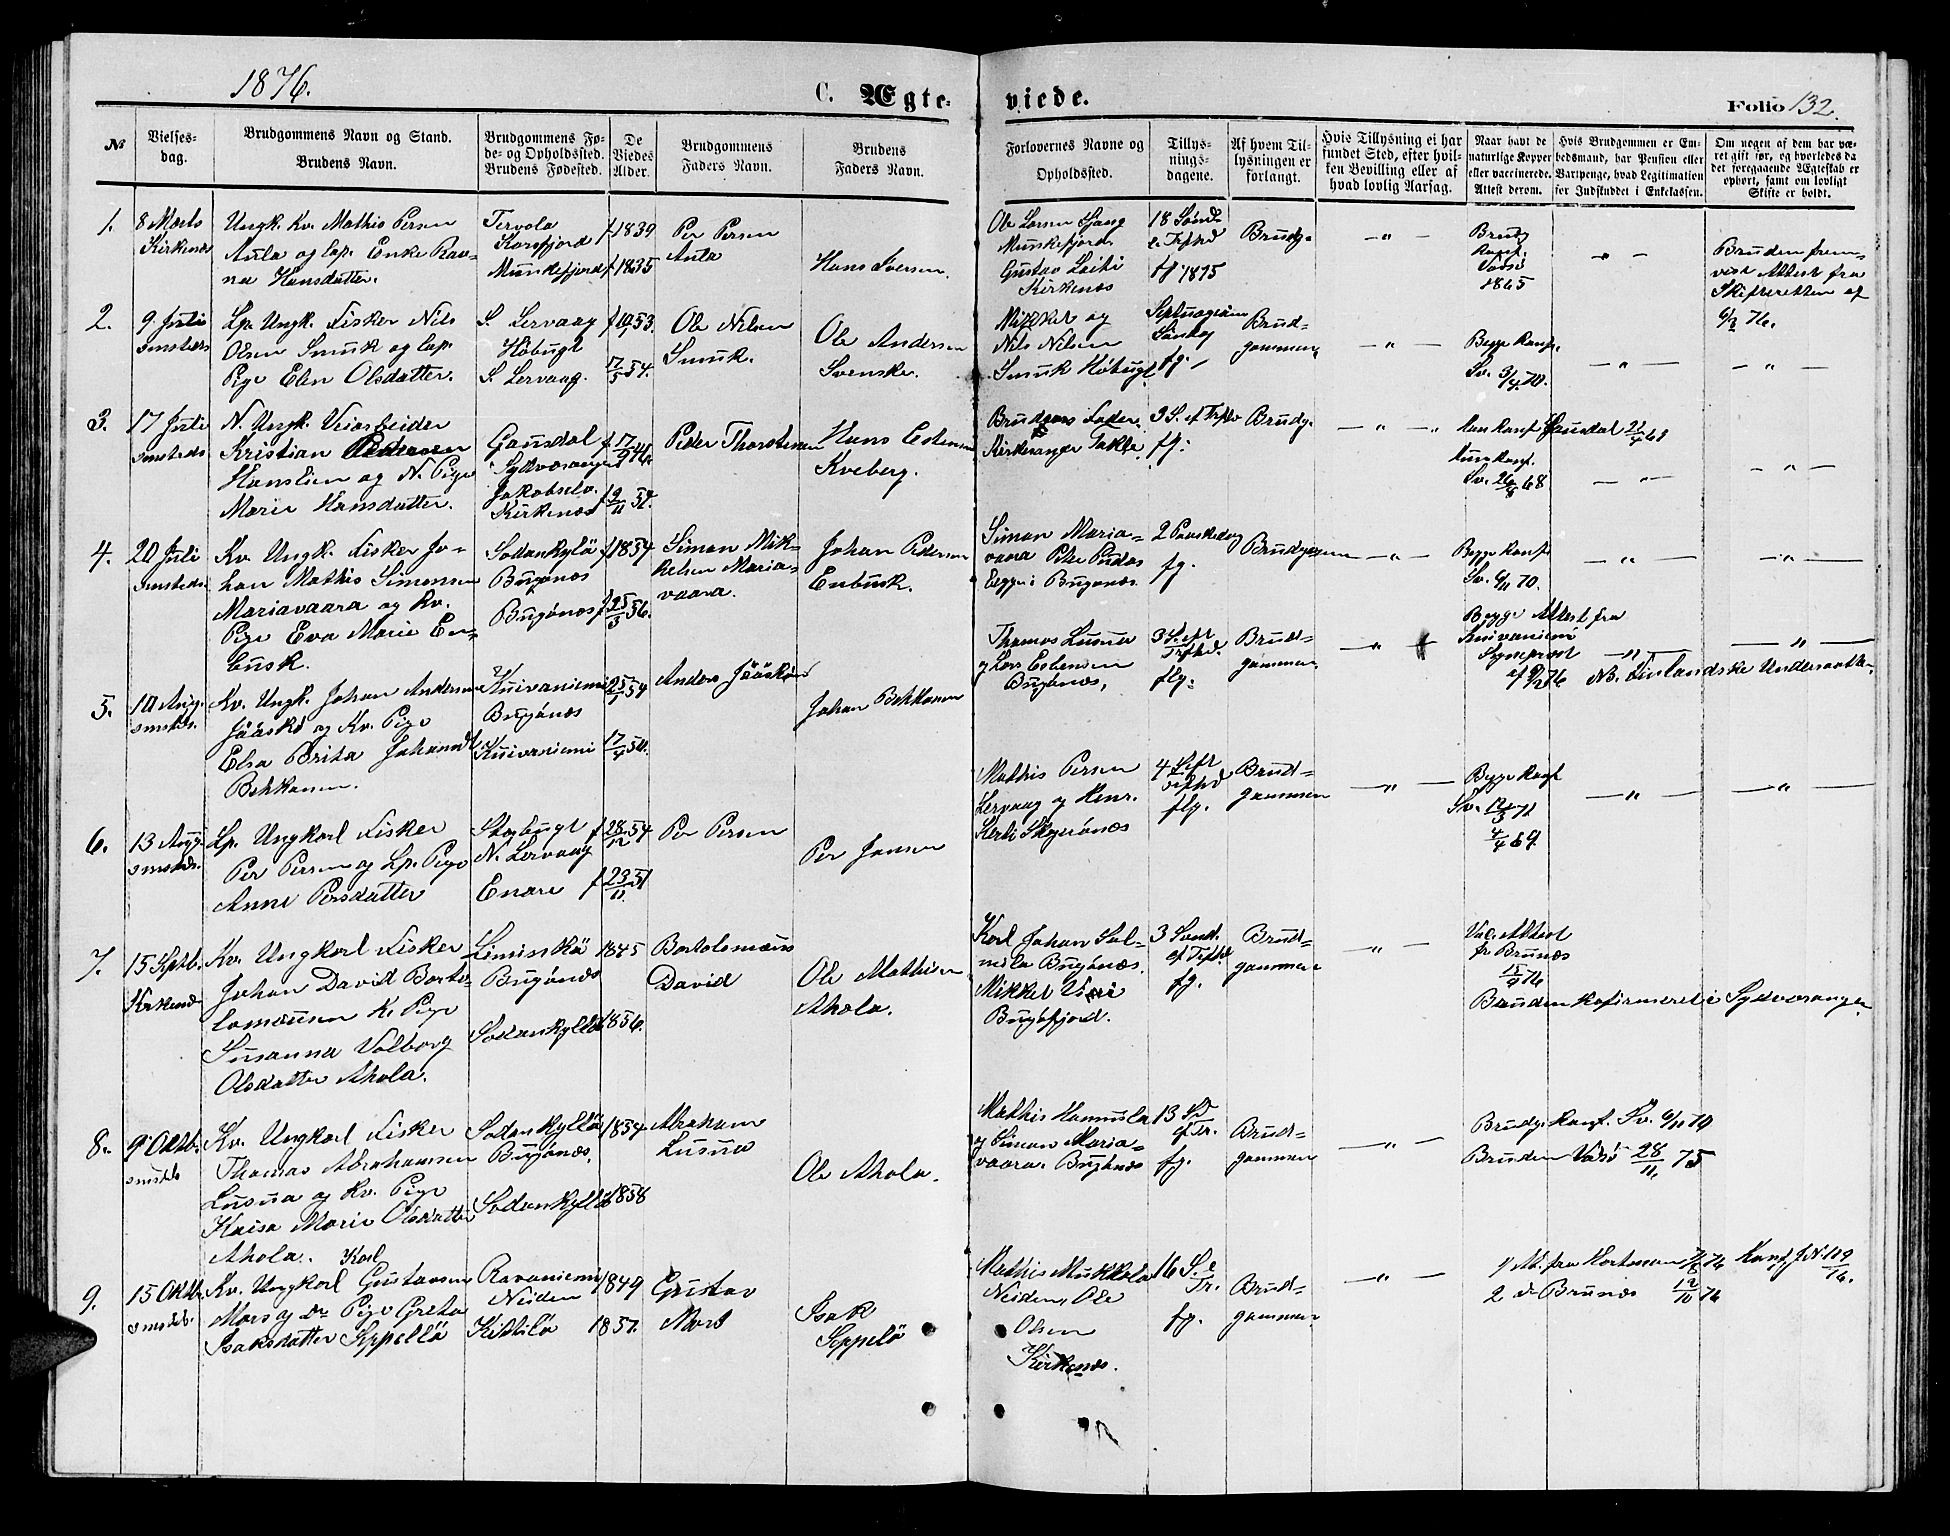 1876.
C. Ægte-
viede.
Folio 132.
№
Vielses-
dag.
Brudgommens Navn og Stand.
Brudens Navn.
Brudgommens Fø-
de- og Opholdssted.
Brudens Fødested.
De
Viedes
Alder.
Brudgommens
Faders Navn.
Brudens
Faders Navn.
Forlovernes Navne og
Opholdssted.
Tillys-
nings-
dagene.
Af hvem Til-
lysningen er
forlangt.
Hvis Tillysning ei har
fundet Sted, efter hvil-
ken Bevilling eller af
hvad lovlig Aarsag.
Naar havt de
naturlige Kopper
eller vaccinerede.
Attest derom.
Hvis Brudgommen er Em-
bedsmand, har Pension eller
Vartpenge, hvad Legitimation
for Indskuddet i Enkekassen.
Om nogen af dem har væ-
ret gift før, og hvorledes da
det foregaaende Ægteskab er
ophørt, samt om lovligt
Skifte er holdt.
1.
8 Marts
Kirkenæs
Ungk. Kv. Mathis Persen
Aula og Lap. Enke Rav-
na Hansdatter.
Tervola
Korsfjord
Munkefjord
f 1839
f 1835
Per Persen
Aula
Hans Iversen.
Ole Larsen Gjang
Munkefjord
Gustav Laiti
Kirkenæs
18 Sønd.
e Trfhd
ff 1875
Brudg.
Brudg
Konf.
Vadsø
1865
Bruden frem-
vist Attest fra
Skifteretten af
6/3 76.
2.
9 Juli
smsteds
Lp. Ungk. Fisker Nils
Olsen Smuk og Lap.
Pige Elen Olsdatter.
S. Lervaag
Høbugt
S. Lervaag.
17/5 54.
Ole Nilsen
Smuk.
Ole Andersen
Svenske.
Mikkel og
Nils Nilsen
Smuk Høbugt
Septuagesima
Søndag
fg.
Brud-
gommen
Begge Konf.
Sv. 3/4 70.
3.
17 Juli
smsteds
N. Ungk. Veiarbeider
Kristian Pedersen
Hanslien og N. Pige
Marie Hansdatter.
Gausdal
Sydvaranger
Jakobselv.
Kirkenæs
f 17/9 46
f 9/11 57.
Peder Thorstensen
Hans Estensen
Kveberg.
Brudens Fader
Kirkesanger Takle.
3 S. ef Trfhd
fg:
Brudg.
Han Konf Gausdal 21/4 61
Hun Konf.
Sv. 26/8 68
4.
20 Juli
smsteds
Kv. Ungk. Fisker Jo-
han Mathis Simonsen
Mariavaara og Kv.
Pige Eva Marie En-
busk.
Sodankylø
Bugønæs
Bugønæs
f 1854
f 25/3 56.
Simon Mik-
kelsen Maria-
vaara.
Johan Pedersen
Enbusk.
Simon Maria-
vaara Peke Pudas
Begge i Bugønæs.
2 Paaskedag
fg.
Brudgommen
Begge Konf
Sv. 6/11 70.
5.
10 Aug.
smsteds.
Kv. Ungk. Johan Andersen
Jääskö og Kv. Pige
Elsa Brita Johansdt
Behkanen.
Kuivaniemi
Bugønæs
Kuivaniemi
17/4 50.
Anders Jääskö
Johan Behkanen
Thomas Lusua
og Lars Estensen
Bugønæs,
3 S. eft
Trfhd.
flg:
Brud-
gommen
Begge Attest fra
Kuivaniemi
Sogneprest
N.B. Finlandske Undersaatter
6.
13 Aug.
smsteds.
Lp. Ungkarl Fisker
Per Persen og Lp. Pige
Anne Persdatter
Skogbugt
N. Lervaag
Enare
f 28/12 54
f 23/11 51
Per Persen
Per Jansen
Mathis Persen
Lervaag og Henr.
Kerti Skogerønæs
4 S. eft
Trfhd
flg.
Brud-
gommen
Begge Konf
Sv. 12/3 71
4/4 69.
7.
15 Septb.
Kirkenæs
Kv. Ungkarl Fisker
Johan David Barto-
lomæusen K. Pige
Susanna Valborg
Olsdatter Ahola.
Simiskä
Bugønæs
Sodankylä
1845
1856.
Bartolomæus
David
Ole Mathisen
Ahola.
Karl Johan Sal-
mela Bugønæs.
Mikkel
Bugøfjord.
3 Sønd.
ef Trfhd
fg.
Brud-
gommen
Vac. Attest
fr Brunæs
15/9 76
Bruden Kofirmeret i Sydvaranger
8.
9 Oktb.
smsteds
Kv. Ungkarl Fisker
Thomas Abrahamsen
Lusua og Kv. Pige
Kaisa Marie Olsdatter
Ahola.
Sodankylä
Bugønæs.
Sodankylä
1854
1858
Abraham
Lusua
Ole Ahola.
Mathis Hannula
og Simon Maria-
vaara. Bugønæs
13 Sd
ef Tr.
fg.
Brud-
gommen
Brudg. Konf. Sv. 6/11 70
Bruden Vadsø 28/11 75
9.
15 Oktb.
smsteds.
Karl
Kv. Ungkarl Gustavsen
Mars og do Pige Greta
Isaksdatter Seppelä
Rovaniemi
Neiden
Kittilä
1849
1857.
Gustav
Mars
Isak
Seppelä
Mathis Mukkola
Neiden, Ole
Olsen
Kirkenæs.
16 S. e
Tr.
fg.
Brud-
gommen
2 do Brunæs 12/10 76